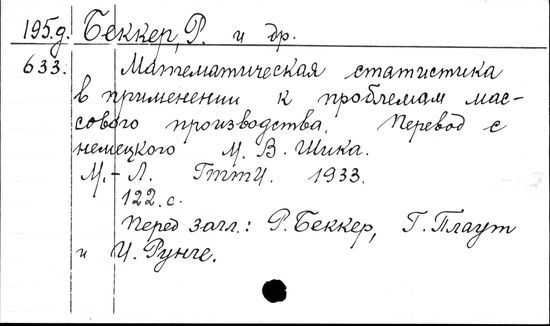 195д. Беккер, Р. и др.
633. Математическая статистика
в применении к проблемам мас-
сового производства. Перевод с
немецкого М. В. Шика.
М.-Л. ГТТИ. 1933.
122. с.
Перед загл.: Р. Беккер, Г. Плаут
и И. Рунге.